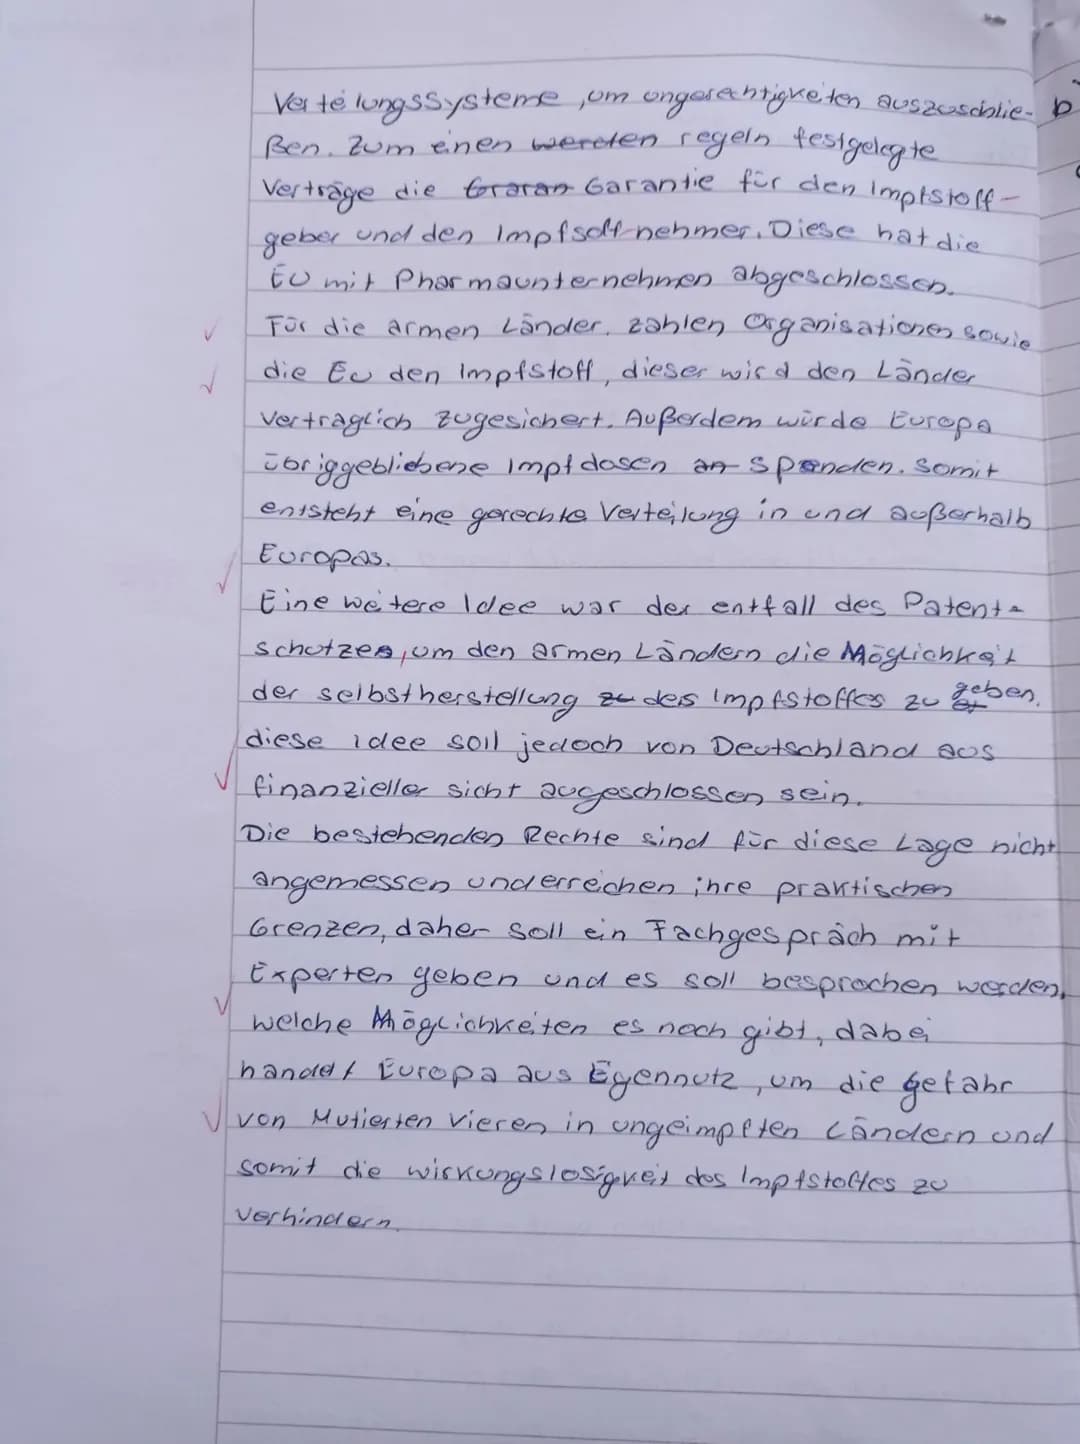 Verteilungssysteme, um ungerechtigkeiten auszuschlie-
ßen. Zum einen werden regeln festgelegte
Verträge die Garantie für den Impfstoff-
geber und den Impfsoff-nehmer. Diese hat die
EU mit Pharmaunternehmen abgeschlossen.
Für die armen Länder. zahlen Organisationen sowie
die Eu den Impfstoff, dieser wird den Länder
vertraglich zugesichert. Außerdem würde Europa
übriggebliebene Impfdosen an spenden. somit
entsteht eine gerechte Verteilung in und außerhalb
Europas.
Eine weitere Idee war der entfall des Patent-
schutzes, um den armen Ländern die Möglichkeit
der selbstherstellung zu des Impfstoffes zu geben.
diese idee soll jedoch von Deutschland aus
finanzieller sicht augeschlossen sein.
Die bestehenden Rechte sind für diese Lage nicht
angemessen und erreichen ihre praktischen
Grenzen, daher soll ein Fachgespräch mit
Experten geben und es soll besprochen werden,
welche Möglichkeiten es noch gibt, dabei
handelt Europa aus Eigennutz, um die gefahr
von Mutierten Vieren in ungeimpften Ländern und
somit die wirkungslosigkeit des Impfstoffes zu
verhindern.